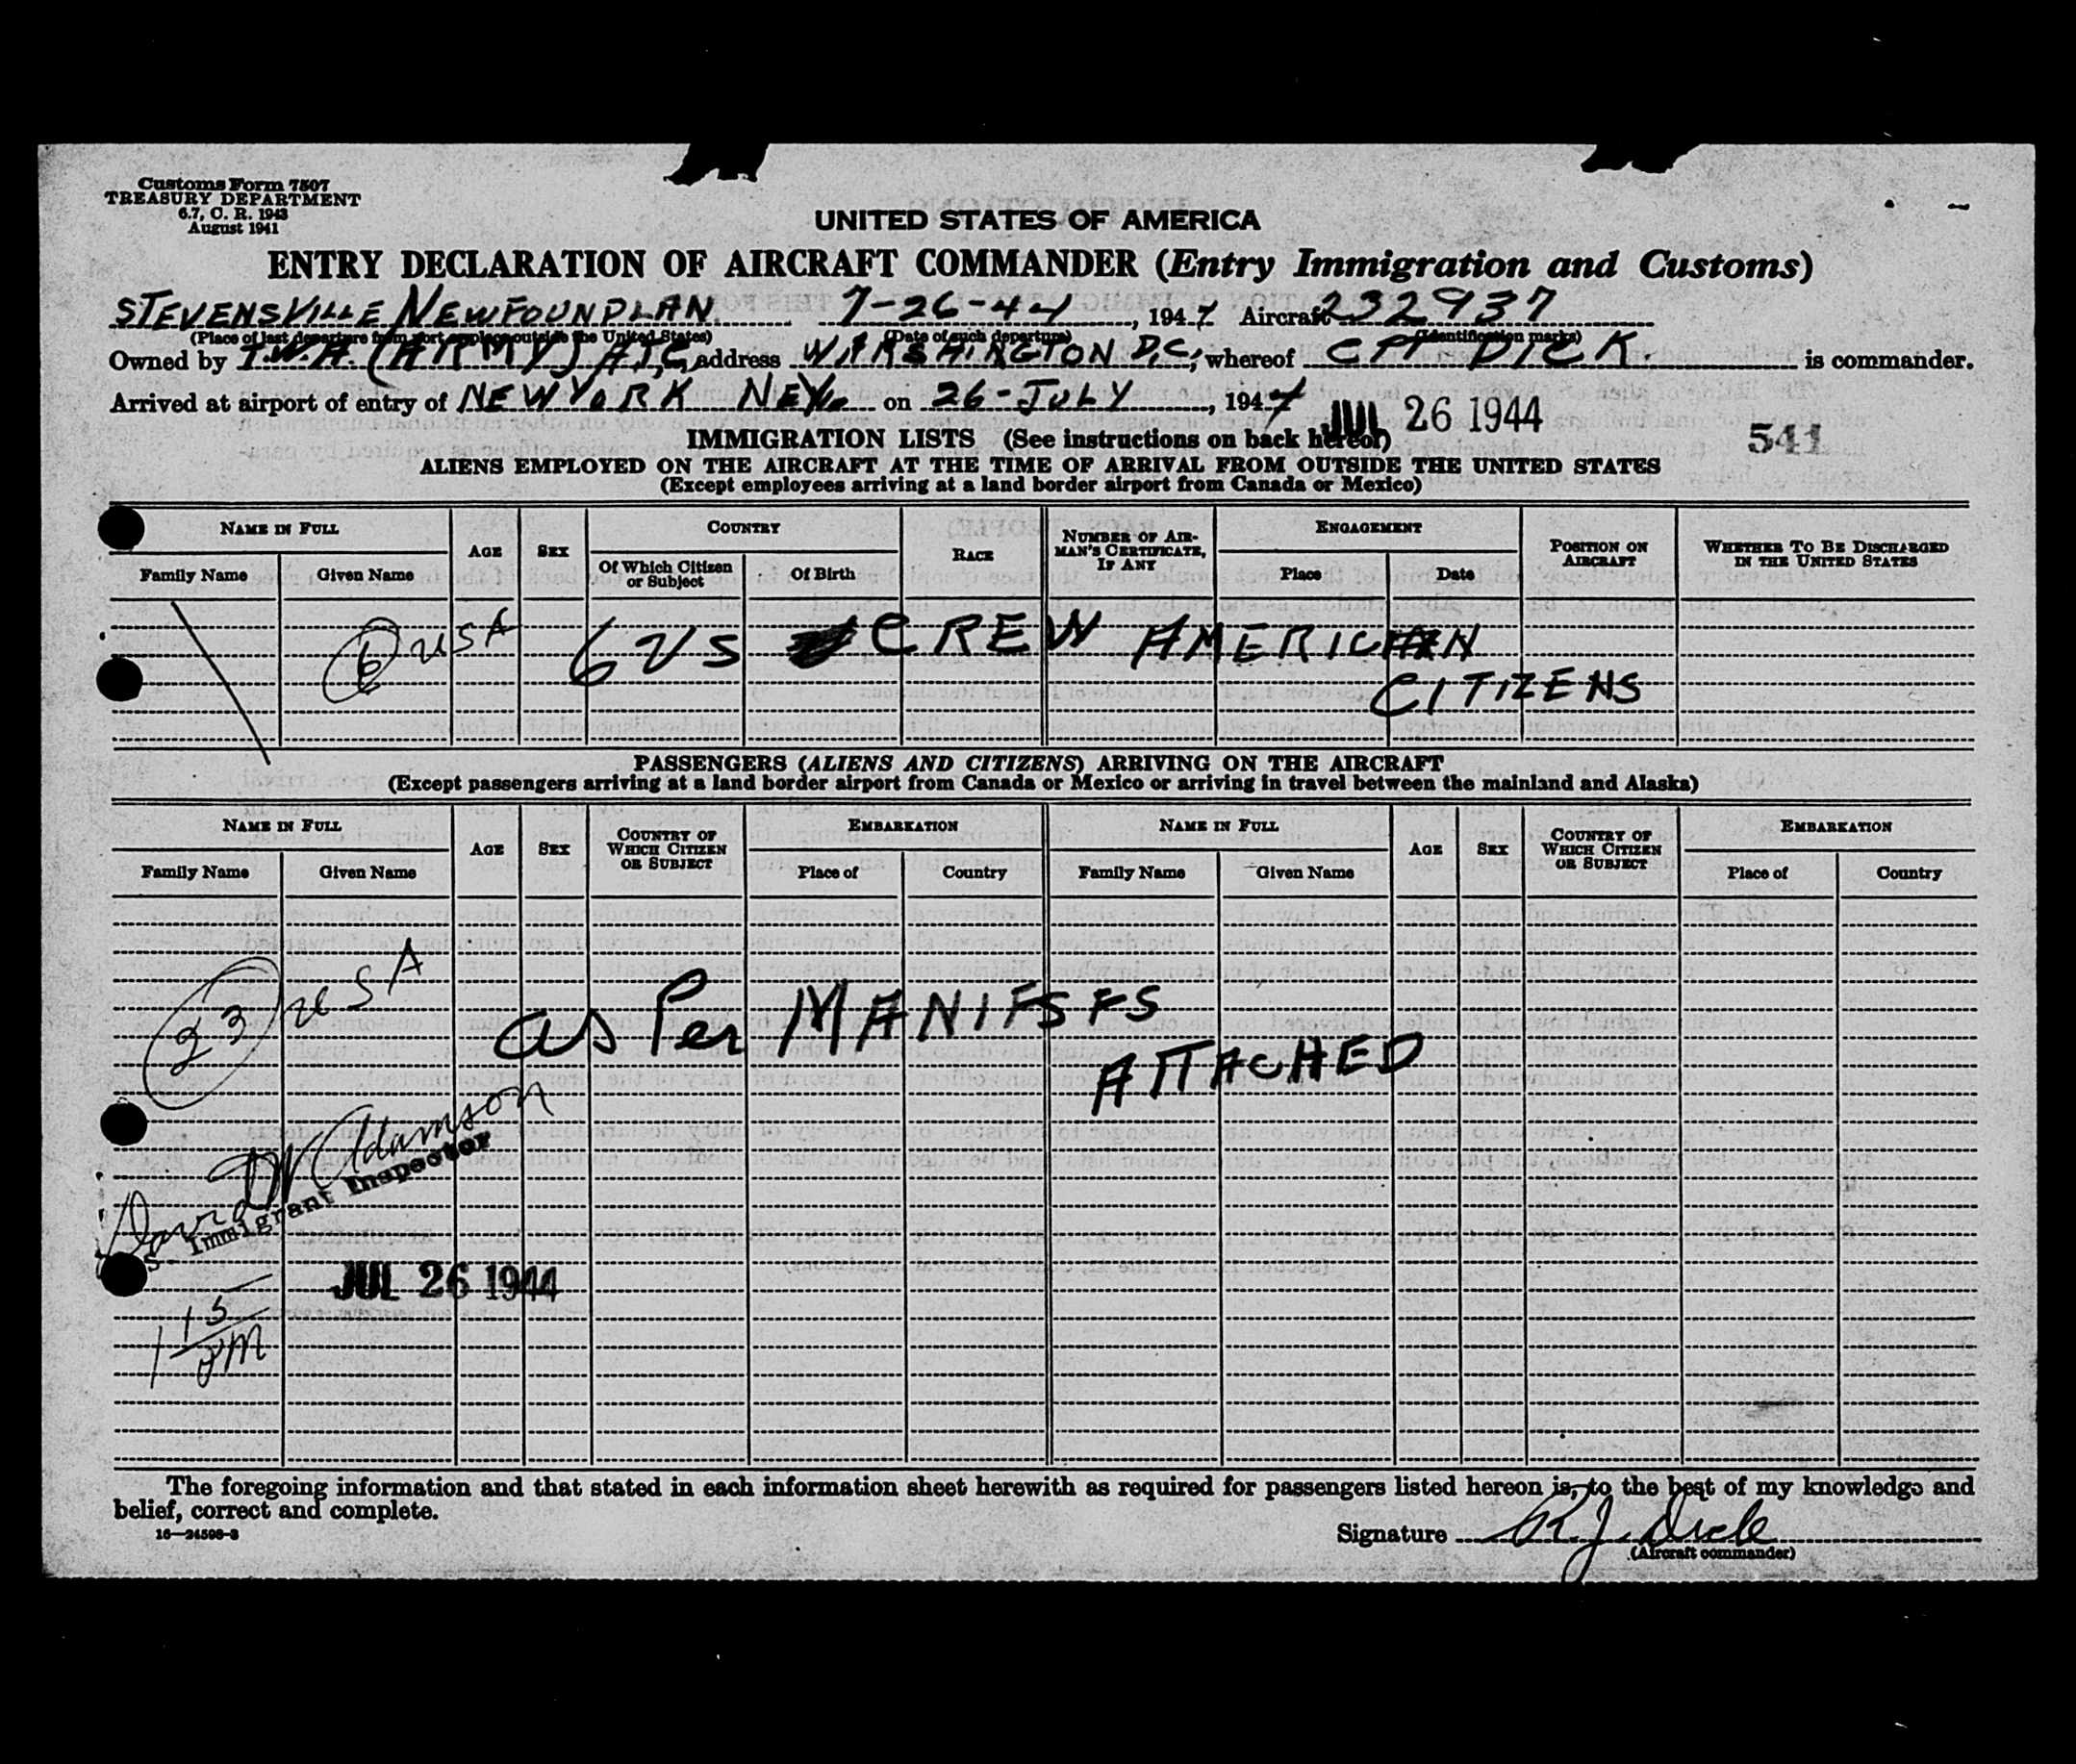 Customs Form 7507
TREASURY DEPARTMENT
6.7, C. R. 1943
August 1941
UNITED STATES OF AMERICA
ENTRY DECLARATION OF AIRCRAFT COMMANDER (Entry Immigration and Customs)
STEVENSVILLE NEWFOUNDLAN 7-26-44, 1944 Aircraft 232937
(Place of last departure from port or place outside the United States) (Date of such departure) (Identification marks)
Owned by T.W.A. (ARMY) A.T.C. address WASHINGTON D.C., whereof CPT DICK. is commander.
Arrived at airport of entry of NEW YORK NEY. on 26-JULY, 1944 JUL 26 1944
541
IMMIGRATION LISTS (See instructions on back hereof)
ALIENS EMPLOYED ON THE AIRCRAFT AT THE TIME OF ARRIVAL FROM OUTSIDE THE UNITED STATES
(Except employees arriving at a land border airport from Canada or Mexico)
NAME IN FULL AGE SEX COUNTRY RACE NUMBER OF AIRMAN'S CERTIFICATE, IF ANY ENGAGEMENT POSITION ON AIRCRAFT WHETHER TO BE DISCHARGED IN THE UNITED STATES
Family Name Given Name Of Which Citizen or Subject Of Birth Place Date
6 USA 6 US CREW AMERICAN
CITIZENS
PASSENGERS (ALIENS AND CITIZENS) ARRIVING ON THE AIRCRAFT
(Except passengers arriving at a land border airport from Canada or Mexico or arriving in travel between the mainland and Alaska)
NAME IN FULL AGE SEX COUNTRY OF WHICH CITIZEN OR SUBJECT EMBARKATION NAME IN FULL AGE SEX COUNTRY OF WHICH CITIZEN OR SUBJECT EMBARKATION
Family Name Given Name Place of Country Family Name Given Name Place of Country
23 USA as Per MANIFSFS
ATTACHED
David W Adamson
Immigrant Inspector
JUL 26 1944
1 15
PM
The foregoing information and that stated in each information sheet herewith as required for passengers listed hereon is, to the best of my knowledge and
belief, correct and complete.
16—24598-3
Signature R. J. Dick
(Aircraft commander)